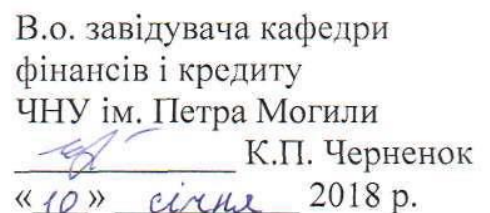 В.о. завідувача кафедри
фінансів і кредиту
ЧНУ ім. Петра Могили
К.П. Черненок
«10» січня 2018 р.